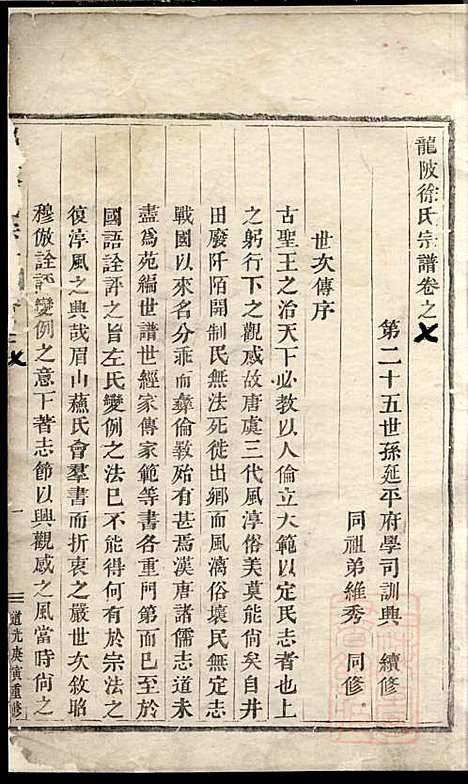 龍陂徐氏宗譜卷之
第二十五世孫延平府學司訓興 續修
同祖弟維秀 同修
世次傳序
古聖王之治天下必教以人倫立大範以定民志者也上
之躬行下之觀感故唐虞三代風淳俗美莫能尚矣自井
田廢阡陌開制民無法死徙出鄉而風漓俗壞民無定志
戰國以來名分乖而彝倫斁殆有甚焉漢唐諸儒志道未
盡為苑編世譜世經家傳家範等書各重門第而已至於
國語詮評之旨左氏變例之法已不能得何有於宗法之
復淳風之興哉眉山蘓氏會羣書而折衷之嚴世次敘昭
穆倣詮評變例之意下著志節以興觀感之風當時尚之
一
道光庚寅重修